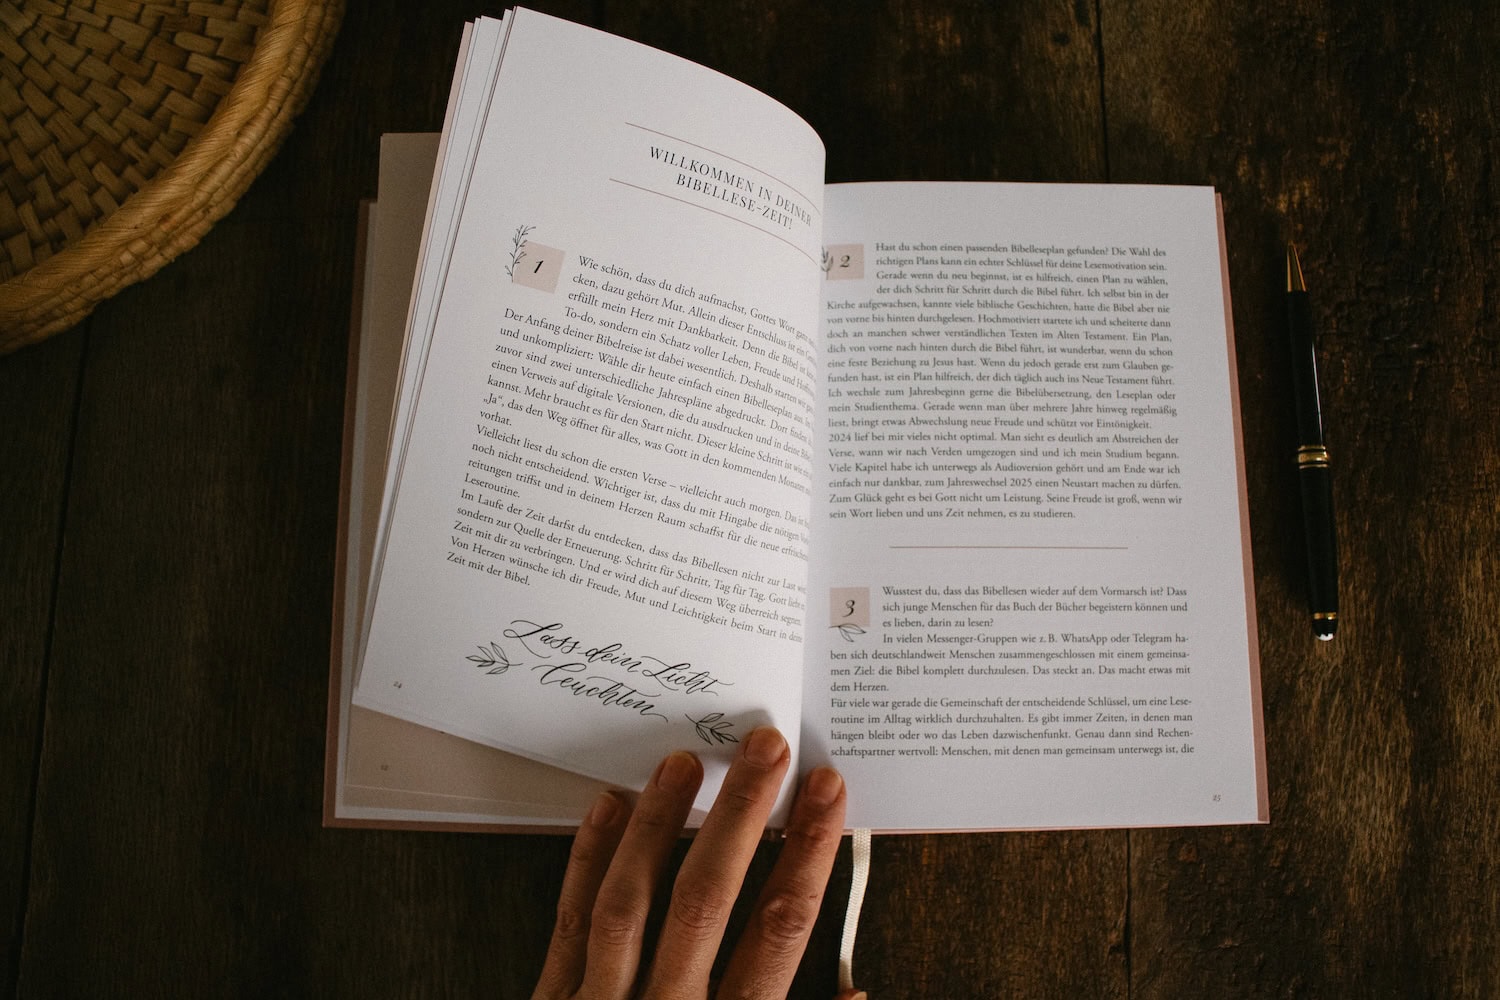 WILLKOMMEN IN DEINER
BIBELLESE-ZEIT!
1
Wie schön, dass du dich aufmachst, Gottes Wort ganz
cken, dazu gehört Mut. Allein dieser Entschluss ist ein
erfüllt mein Herz mit Dankbarkeit. Denn die Bibel ist kein
To-do, sondern ein Schatz voller Leben, Freude und
Der Anfang deiner Bibelreise ist dabei wesentlich. Deshalb starten wir
und unkompliziert: Wähle dir heute einfach einen Bibelleseplan aus. Im
zuvor sind zwei unterschiedliche Jahrespläne abgedruckt. Dort findest
einen Verweis auf digitale Versionen, die du ausdrucken und in deine
kannst. Mehr braucht es für den Start nicht. Dieser kleine Schritt ist wie ein
„Ja“, das den Weg öffnet für alles, was Gott in den kommenden Monaten
vorhat.
Vielleicht liest du schon die ersten Verse – vielleicht auch morgen. Das ist
noch nicht entscheidend. Wichtiger ist, dass du mit Hingabe die nötigen
reitungen triffst und in deinem Herzen Raum schaffst für die neue
Leseroutine.
Im Laufe der Zeit darfst du entdecken, dass das Bibellesen nicht zur Last wird,
sondern zur Quelle der Erneuerung. Schritt für Schritt, Tag für Tag. Gott liebt es
Zeit mit dir zu verbringen. Und er wird dich auf diesem Weg überreich segnen.
Von Herzen wünsche ich dir Freude, Mut und Leichtigkeit beim Start in deine
Zeit mit der Bibel.
Lass dein Licht
leuchten
24
2
Hast du schon einen passenden Bibelleseplan gefunden? Die Wahl des
richtigen Plans kann ein echter Schlüssel für deine Lesemotivation sein.
Gerade wenn du neu beginnst, ist es hilfreich, einen Plan zu wählen,
der dich Schritt für Schritt durch die Bibel führt. Ich selbst bin in der
Kirche aufgewachsen, kannte viele biblische Geschichten, hatte die Bibel aber nie
von vorne bis hinten durchgelesen. Hochmotiviert startete ich und scheiterte dann
doch an manchen schwer verständlichen Texten im Alten Testament. Ein Plan,
dich von vorne nach hinten durch die Bibel führt, ist wunderbar, wenn du schon
eine feste Beziehung zu Jesus hast. Wenn du jedoch gerade erst zum Glauben ge-
funden hast, ist ein Plan hilfreich, der dich täglich auch ins Neue Testament führt.
Ich wechsle zum Jahresbeginn gerne die Bibelübersetzung, den Leseplan oder
mein Studienthema. Gerade wenn man über mehrere Jahre hinweg regelmäßig
liest, bringt etwas Abwechslung neue Freude und schützt vor Eintönigkeit.
2024 lief bei mir vieles nicht optimal. Man sieht es deutlich am Abstreichen der
Verse, wann wir nach Verden umgezogen sind und ich mein Studium begann.
Viele Kapitel habe ich unterwegs als Audioversion gehört und am Ende war ich
einfach nur dankbar, zum Jahreswechsel 2025 einen Neustart machen zu dürfen.
Zum Glück geht es bei Gott nicht um Leistung. Seine Freude ist groß, wenn wir
sein Wort lieben und uns Zeit nehmen, es zu studieren.
3
Wusstest du, dass das Bibellesen wieder auf dem Vormarsch ist? Dass
sich junge Menschen für das Buch der Bücher begeistern können und
es lieben, darin zu lesen?
In vielen Messenger-Gruppen wie z. B. WhatsApp oder Telegram ha-
ben sich deutschlandweit Menschen zusammengeschlossen mit einem gemeinsa-
men Ziel: die Bibel komplett durchzulesen. Das steckt an. Das macht etwas mit
dem Herzen.
Für viele war gerade die Gemeinschaft der entscheidende Schlüssel, um eine Lese-
routine im Alltag wirklich durchzuhalten. Es gibt immer Zeiten, in denen man
hängen bleibt oder wo das Leben dazwischenfunkt. Genau dann sind Rechen-
schaftspartner wertvoll: Menschen, mit denen man gemeinsam unterwegs ist, die
25